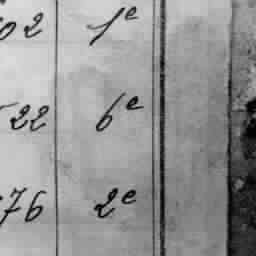 02 1e
22 6e
76 2e